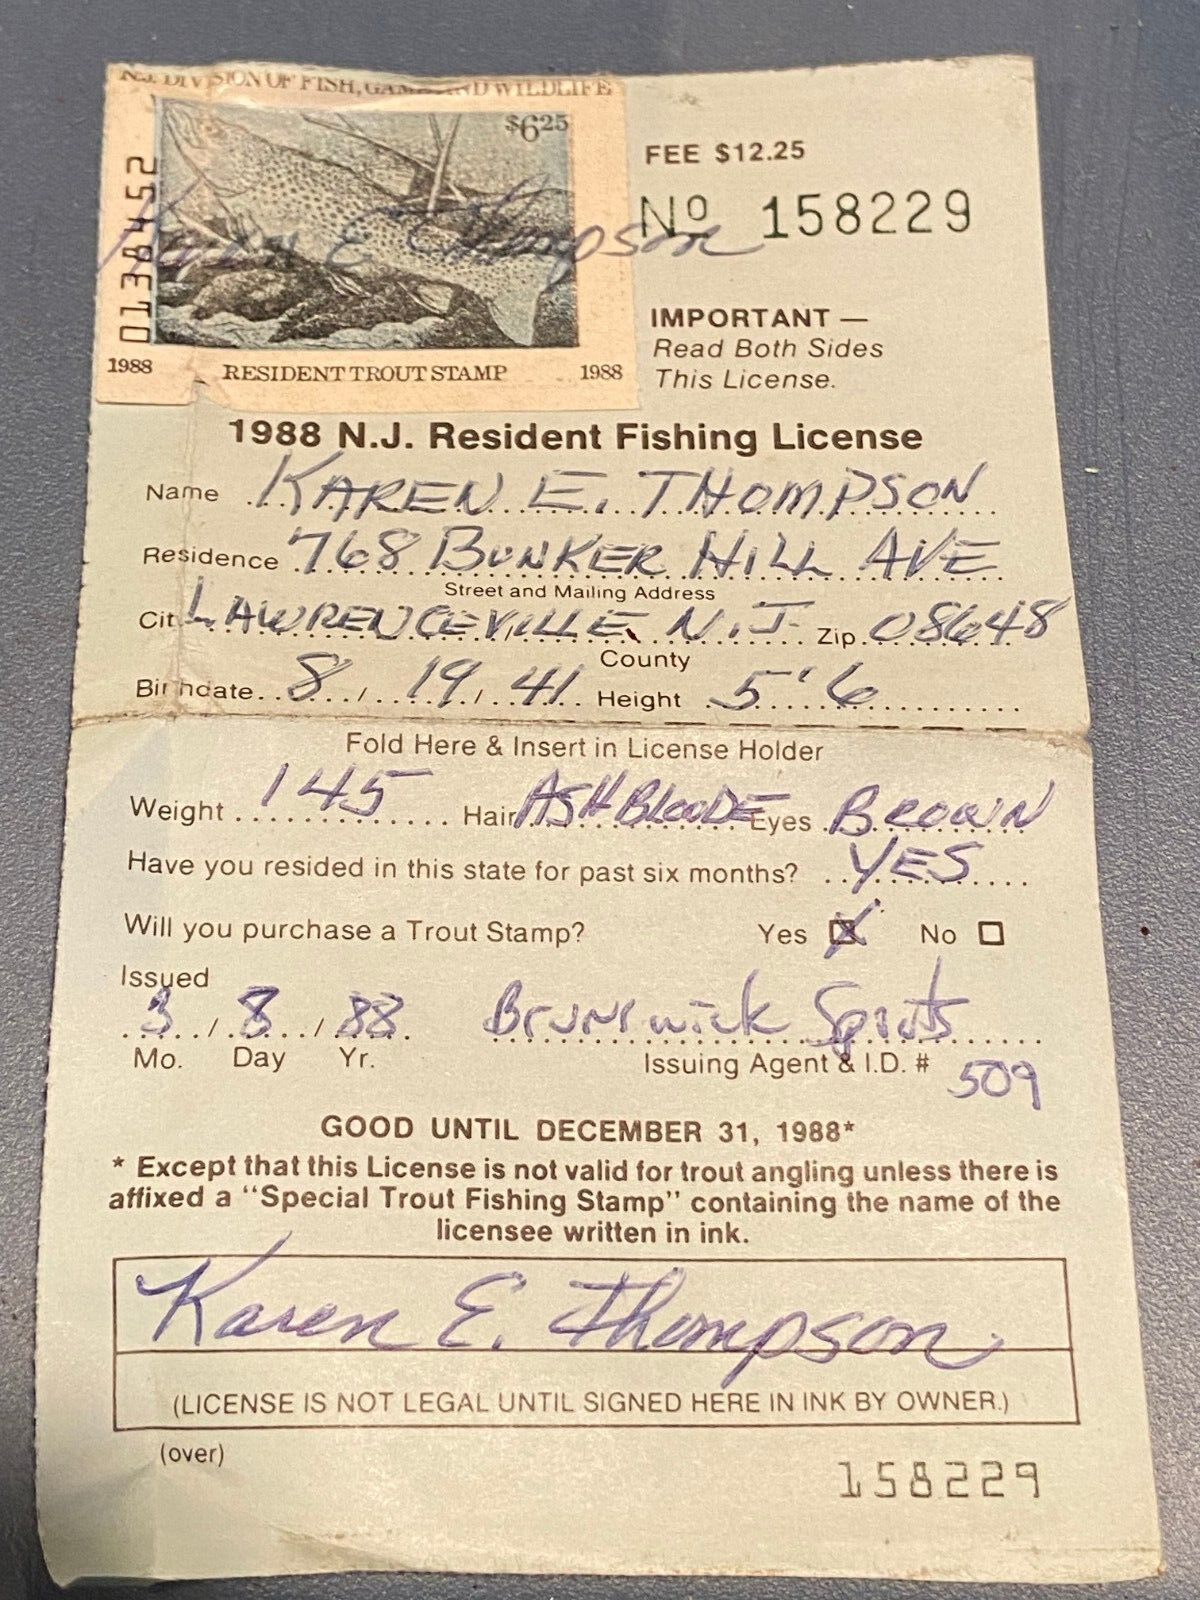 N.J. DIVISION OF FISH, GAME AND WILDLIFE
$6.25
0138452
Karen E Thompson
1988 RESIDENT TROUT STAMP 1988
FEE $12.25
No 158229
IMPORTANT —
Read Both Sides
This License.
1988 N.J. Resident Fishing License
Name KAREN E. THOMPSON
Residence 768 BUNKER HILL AVE
Street and Mailing Address
City LAWRENCEVILLE N.J. Zip 08648
County
Birthdate 8 / 19 / 41 Height 5'6
Fold Here & Insert in License Holder
Weight 145 Hair ASH BLONDE Eyes BROWN
Have you resided in this state for past six months? YES
Will you purchase a Trout Stamp? Yes X No
Issued
3 / 8 / 88 Brunswick Sports
Mo. Day Yr. Issuing Agent & I.D. # 509
GOOD UNTIL DECEMBER 31, 1988*
* Except that this License is not valid for trout angling unless there is
affixed a "Special Trout Fishing Stamp" containing the name of the
licensee written in ink.
Karen E. Thompson
(LICENSE IS NOT LEGAL UNTIL SIGNED HERE IN INK BY OWNER.)
(over)
158229